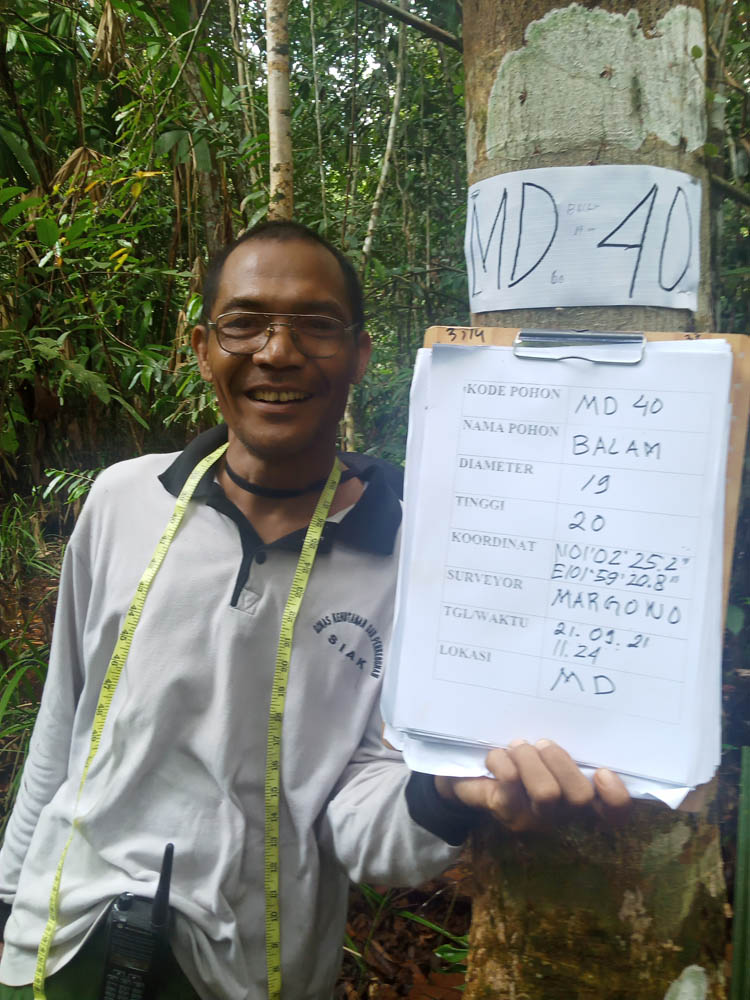 MD 40
3374
KODE POHON MD 40
NAMA POHON BALAM
DIAMETER 19
TINGGI 20
KOORDINAT N01°02'25.2"
E101°59'20.8"
SURVEYOR MARGONO
TGL/WAKTU 21.09.21
11.24
LOKASI MD
DINAS KEHUTANAN DAN PERKEBUNAN
SIAK